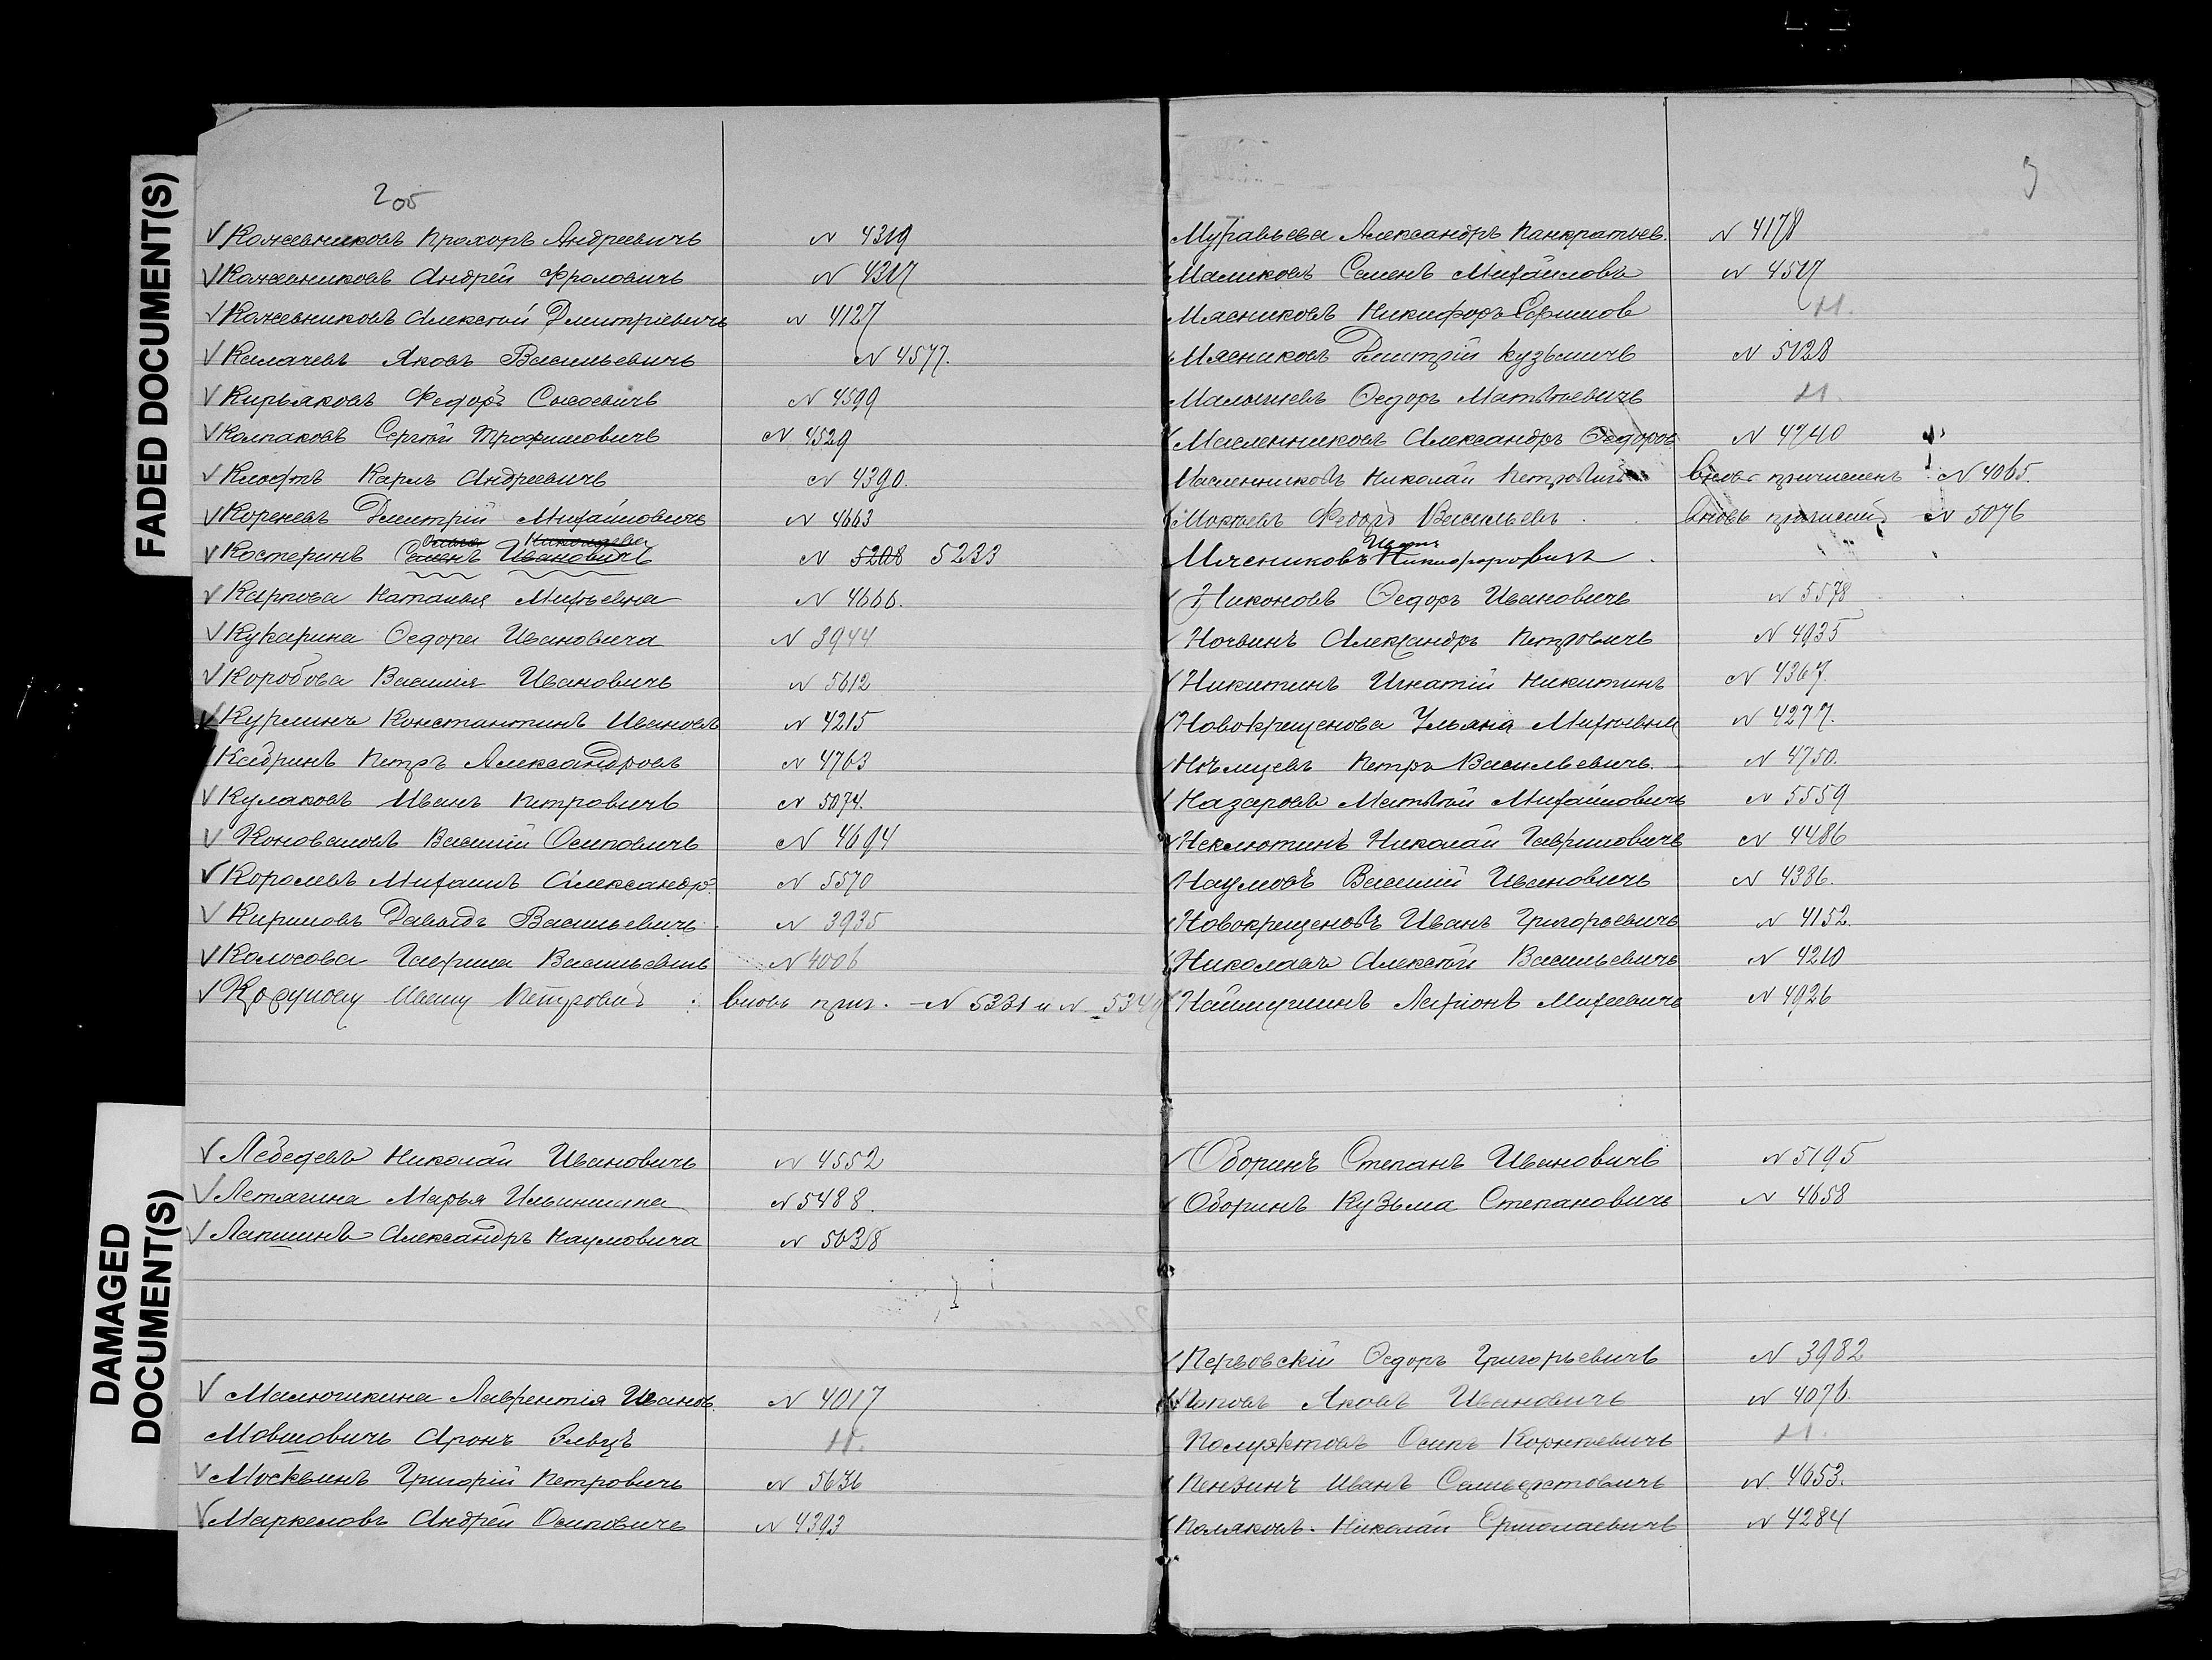 FADED DOCUMENT(S)
DAMAGED DOCUMENT(S)
205
Кожевниковъ Прохоръ Андреевичъ N 4319
Кожевниковъ Андрей Фроловичъ N 4317
Кожевниковъ Алексѣй Дмитріевичъ N 4127
Калачевъ Яковъ Васильевичъ N 4577.
Кирьяковъ Федоръ Сысоевичъ N 4599
Колпаковъ Сергѣй Трофимовичъ N 4529
Клофтъ Карлъ Андреевичъ N 4390.
Кореневъ Дмитрій Михайловичъ N 4663
Николаевна
Костеринъ Семенъ Ивановичъ N 5208 5233
Карпова Наталья Михеевна N 4666.
Кукарина Ѳедора Ивановича N 3944
Коробова Василія Ивановичъ N 5612
Курлинъ Константинъ Ивановъ N 4215
Кадринъ Петръ Александровъ N 4763
Кулаковъ Иванъ Петровичъ N 5074.
Коноваловъ Василій Осиповичъ N 4694
Королевъ Михаилъ Александр. N 5570
Кириловъ Давыдъ Васильевичъ N 3935
Колосова Гаврила Васильевичъ N 4006
Ивану Петровичъ вновь прич. N 5331 и N 534
Лебедевъ Николай Ивановичъ N 4552
Летягина Марья Ильинишна N 5488.
Лапшинъ Александръ Наумовича N 5028
Малюшкина Лаврентія Иванов. N 4017
Мовшовичъ Аронъ Н.
Москвинъ Григорій Петровичъ N 5636
Маркеловъ Андрей Осиповичъ N 4393
3
Муравьева Александръ Панкратьев. N 4178
Маликовъ Семенъ Михайловъ N 4517
Мясниковъ Никифоръ Ефимов Н.
Мясниковъ Дмитрій Кузьмичъ N 5028
Малышевъ Ѳедоръ Матвѣевичъ Н.
Масленниковъ Александръ Ѳедоров N 4740
Масленниковъ Николай Петровичъ вновь причисленъ N 4065.
Мокѣевъ Федоръ Васильевъ вновь N 5076
Мясниковъ Никифоровичъ
Никоновъ Ѳедоръ Ивановичъ N 5578
Ночвинъ Александръ Петровичъ N 4935
Никитинъ Игнатій Никитинъ N 4367.
Новокрещенова Ульяна Михеевна N 4277.
Нѣмцевъ Петръ Васильевичъ. N 4750.
Назаровъ Матвѣй Михайловичъ N 5559
Неклютинъ Николай Гавриловичъ N 4486
Наумовъ Василій Ивановичъ N 4386.
Новокрещеновъ Иванъ Григорьевичъ N 4152.
Николаевъ Алексѣй Васильевичъ N 4210
Наймушинъ Ларіонъ Михеевичъ N 4926
Оборинъ Степанъ Ивановичъ N 5195
Оборинъ Кузьма Степановичъ N 4658
Первовскій Ѳедоръ Григорьевичъ N 3982
Поповъ Яковъ Ивановичъ N 4076.
Полуэктовъ Осипъ Корнѣевичъ Н.
Пензинъ Иванъ Сильверстовичъ N 4653.
Поляковъ Николай Ермолаевичъ N 4284